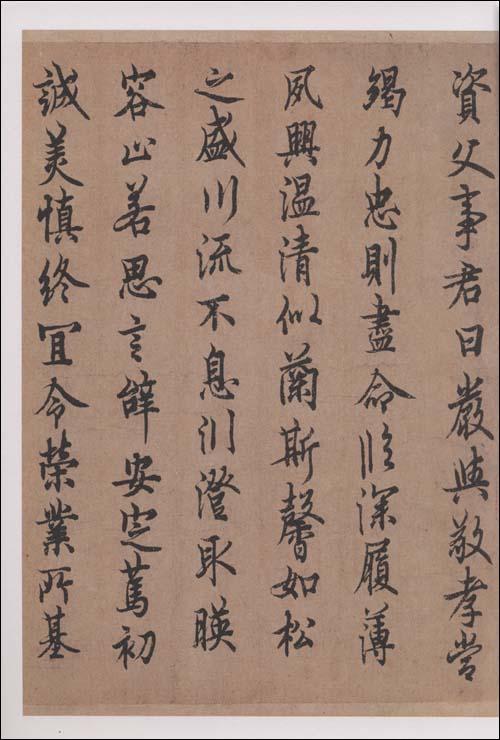 資父事君曰嚴與敬孝當
竭力忠則盡命臨深履薄
夙興温清似蘭斯馨如松
之盛川流不息淵澄取暎
容止若思言辭安定篤初
誠美慎終宜令榮業所基